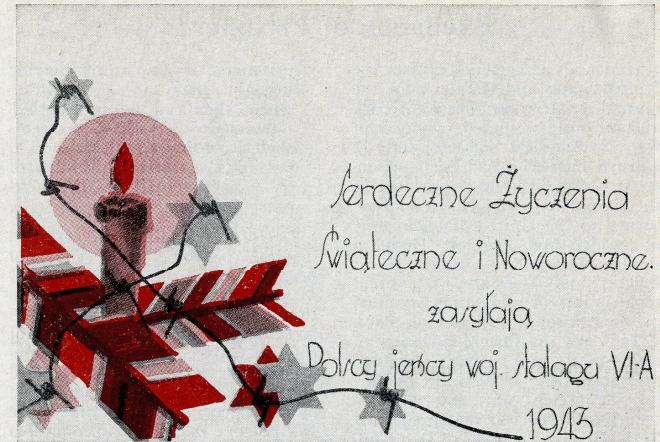 Serdeczne Życzenia
Świąteczne i Noworoczne.
zasyłają
Polscy jeńcy woj. stalagu VI-A
1943